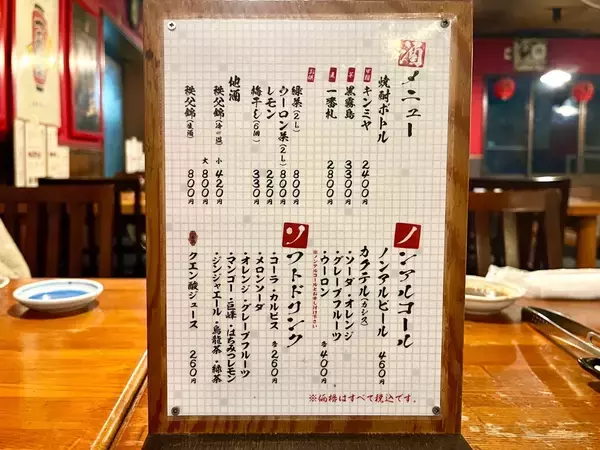 酒メニュー
焼酎ボトル
甲類 キンミヤ 2400円
芋 黒霧島 3300円
麦 一番札 2800円
緑茶(2L) 800円
ウーロン茶(2L) 800円
レモン 220円
梅干し(6個) 330円
地酒
秩父錦(冷・温) 小 420円
大 800円
秩父錦(生酒) 800円
ノンアルコール
ノンアルビール 460円
カクテル(カシス)
・ソーダ・オレンジ
・グレープフルーツ
・ウーロン 各400円
ソフトドリンク
※ノンアルコールとお申し付け下さい
・コーラ・カルピス 各260円
・メロンソーダ
・オレンジ・グレープフルーツ
・マンゴー・巨峰・はちみつレモン
・ジンジャエール・烏龍茶・緑茶
クエン酸ジュース 260円
※価格はすべて税込です。